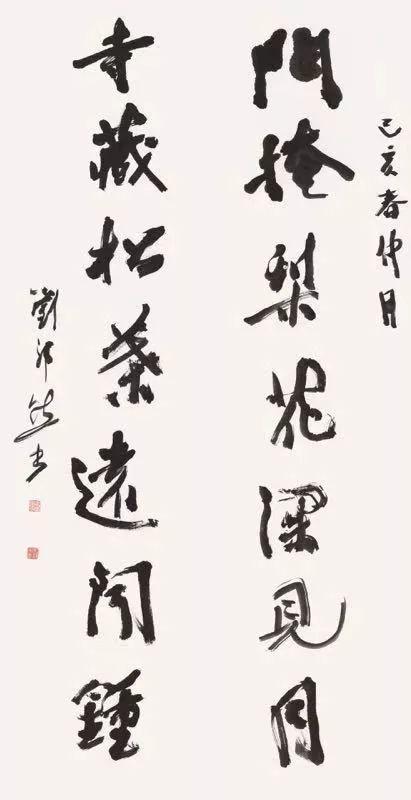 己亥春仲月
門掩梨花深見月
寺藏松葉遠聞鍾
劉